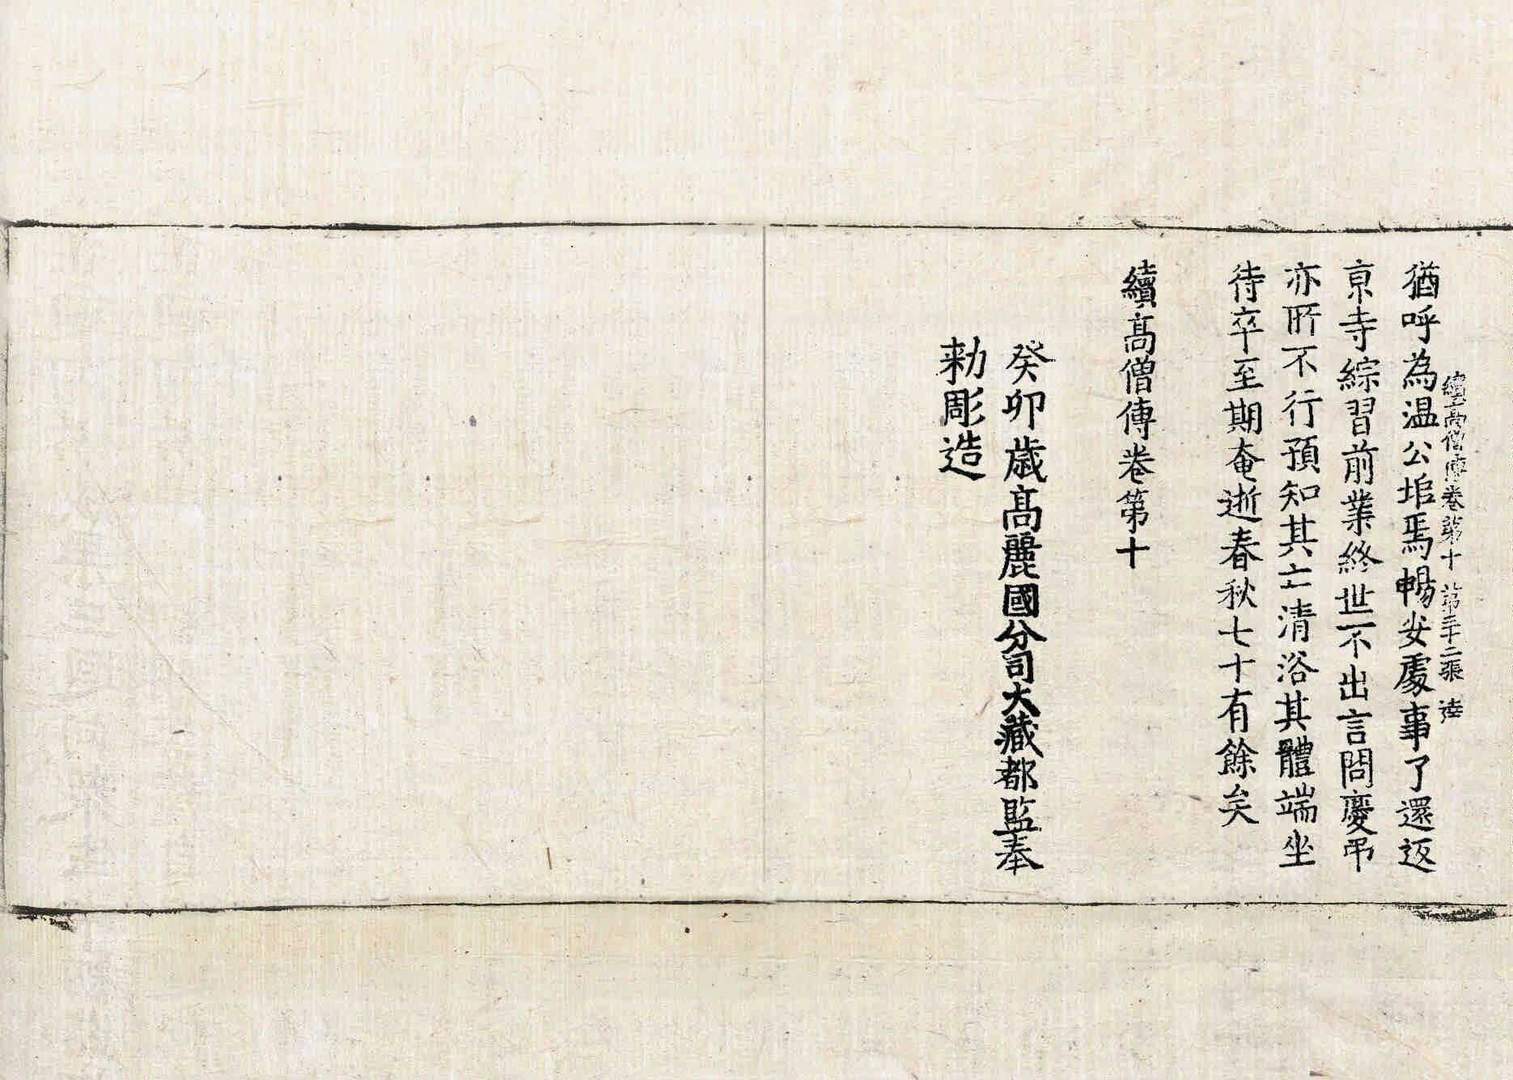 續高僧傳卷第十 第三十二張 㨋
猶呼為温公埳焉暢安處事了還返
京寺綜習前業終世不出言問慶弔
亦所不行預知其亡清浴其體端坐
待卒至期奄逝春秋七十有餘矣
續髙僧傳卷第十
癸卯歳髙麗國分司大藏都監奉
勑彫造